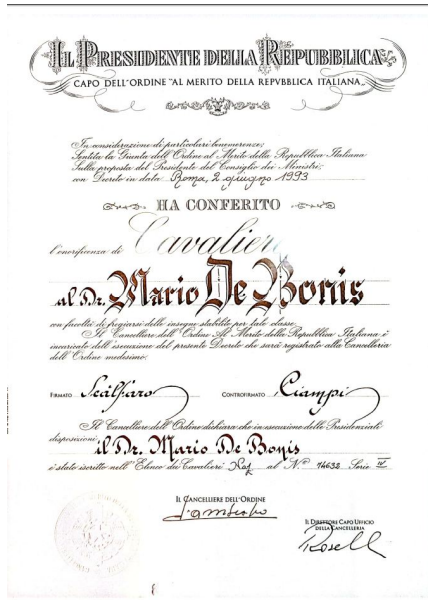 IL PRESIDENTE DELLA REPUBBLICA
CAPO DELL'ORDINE "AL MERITO DELLA REPVBBLICA ITALIANA"
In considerazione di particolari benemerenze;
Sentita la Giunta dell'Ordine al Merito della Repubblica Italiana
Sulla proposta del Presidente del Consiglio dei Ministri;
con Decreto in data Roma, 2 giugno 1993
HA CONFERITO
l'onorificenza di Cavaliere
al Dr. Mario De Bonis
con facoltà di fregiarsi delle insegne stabilite per tale classe.
Il Cancelliere dell'Ordine Al Merito della Repubblica Italiana è
incaricato dell'esecuzione del presente Decreto che sarà registrato alla Cancelleria
dell'Ordine medesimo.
FIRMATO Scalfaro CONTROFIRMATO Ciampi
Il Cancelliere dell'Ordine dichiara che in esecuzione delle Presidenziali
disposizioni il Dr. Mario De Bonis
è stato iscritto nell'Elenco dei Cavalieri Naz. al N° 74632 Serie IV
IL CANCELLIERE DELL'ORDINE
IL DIRETTORE CAPO UFFICIO
DELLA CANCELLERIA